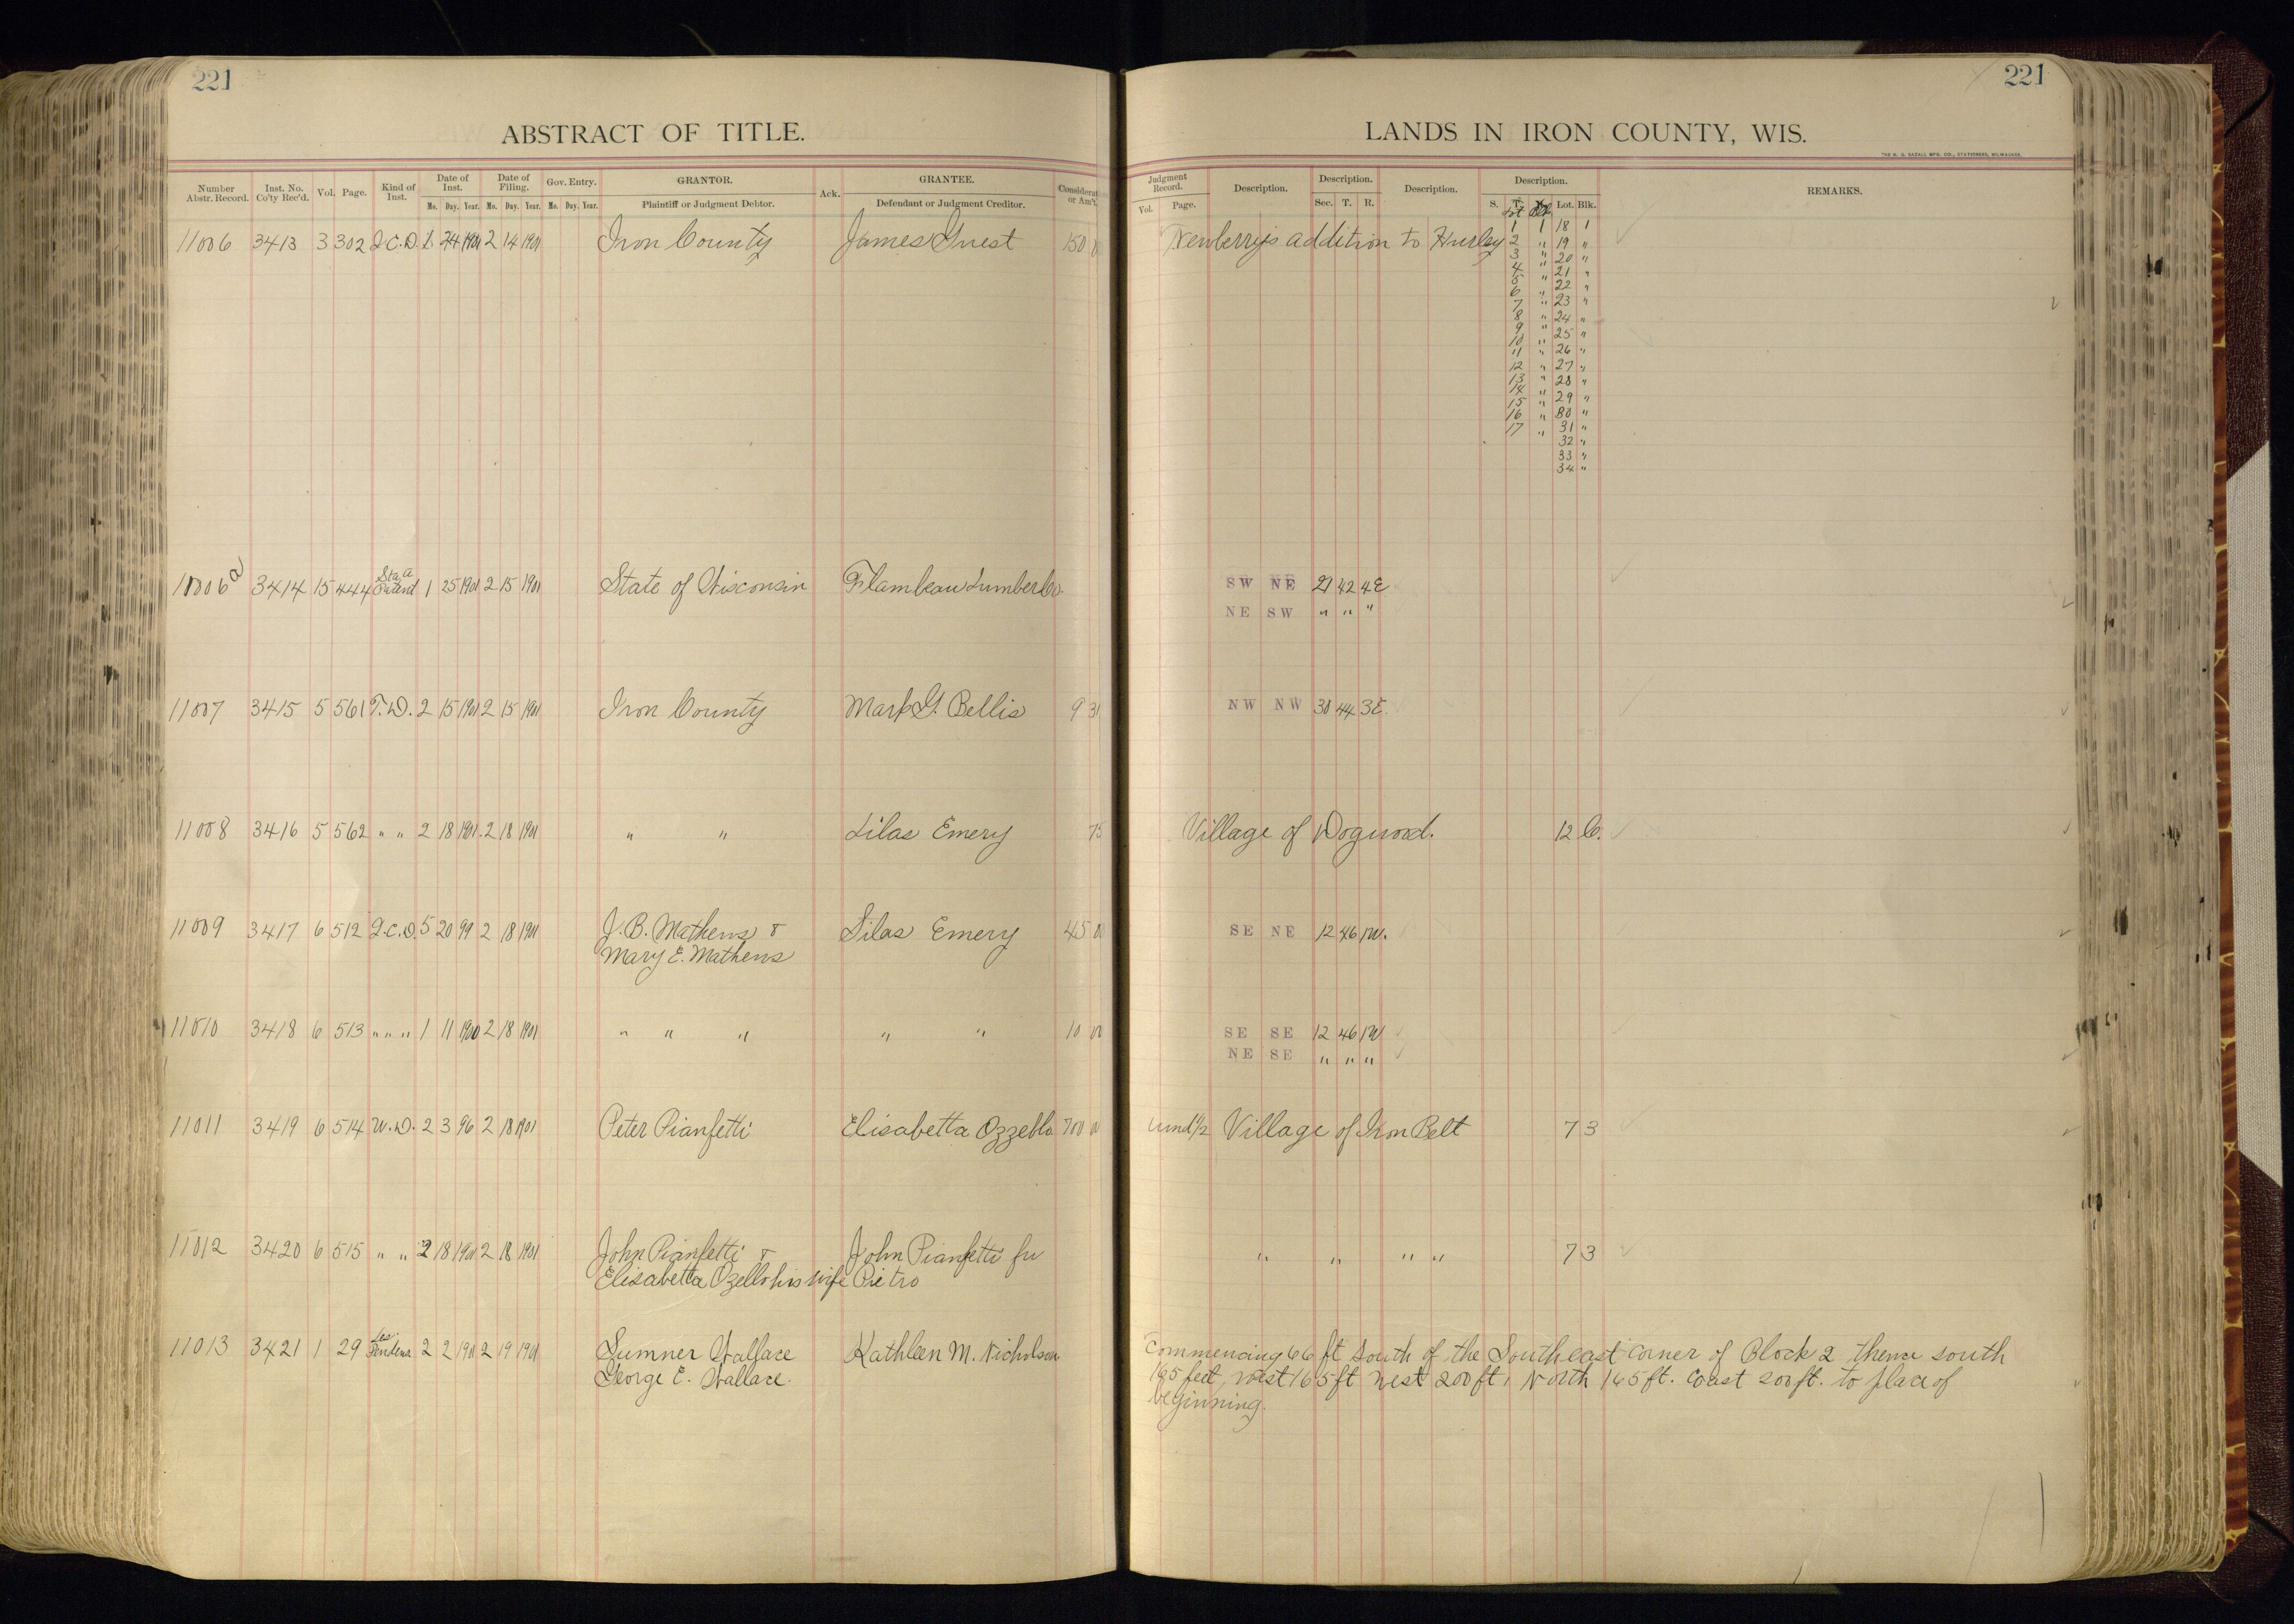 221
ABSTRACT OF TITLE.
Number Abstr. Record. Inst. No. Co'ty Rec'd. Vol. Page. Kind of Inst. Date of Inst. Mo. Day. Year. Date of Filing. Mo. Day. Year. Gov. Entry. Mo. Day. Year. GRANTOR. Plaintiff or Judgment Debtor. Ack. GRANTEE. Defendant or Judgment Creditor. Considerat or Am't
11006 3413 3 302 Q.C.D. 2 14 1901 2 14 1901 Iron County James Guest 150 0
11006a 3414 15 444 State Patent 1 25 1901 2 15 1901 State of Wisconsin Flambeau Lumber Co.
11007 3415 5 561 T.D. 2 15 1901 2 15 1901 Iron County Mark G. Bellis 9 31
11008 3416 5 562 " " 2 18 1901 2 18 1901 " " Silas Emery 75
11009 3417 6 512 Q.C.D. 5 20 99 2 18 1901 J. B. Mathews &
Mary E. Mathews Silas Emery 45 00
11010 3418 6 513 " " " 1 11 1900 2 18 1901 " " " " " 10 00
11011 3419 6 514 W.D. 2 3 96 2 18 1901 Peter Pianfetti Elisabetta Ozzello 700 00
11012 3420 6 515 " " 2 18 1901 2 18 1901 John Pianfetti & John Pianfetti fu
Elisabetta Ozello his wife Pietro
11013 3421 1 29 Les Pendens 2 2 1901 2 19 1901 Sumner Wallace Kathleen M. Nicholson
George E. Wallace.
221
LANDS IN IRON COUNTY, WIS.
THE H. G. RAZALL MFG. CO., STATIONERS, MILWAUKEE.
Judgment Record. Vol. Page. Description. Description. Sec. T. R. Description. Description. S. T. Lot. Blk. REMARKS.
Lot Blk
Newberrys addition to Hurley
1 1 18 1
2 " 19 "
3 " 20 "
4 " 21 "
5 " 22 "
6 " 23 "
7 " 24 "
8 " 25 "
9 " 26 "
10 " 27 "
11 " 28 "
12 " 29 "
13 " 30 "
14 " 31 "
15 " 32 "
16 " 33 "
17 " 34 "
SW NE 21 42 4E
NE SW " " "
NW NW 30 44 3E.
Village of Dogwood. 12 C.
SE NE 12 46 1W.
SE SE 12 46 1W
NE SE " " "
und 1/2 Village of Iron Belt 7 3
" " " " 7 3
Commencing 66 ft South of the Southeast corner of Block 2 thence south
165 feet, west 165 ft west 200 ft, North 165 ft. East 200 ft. to place of
beginning.